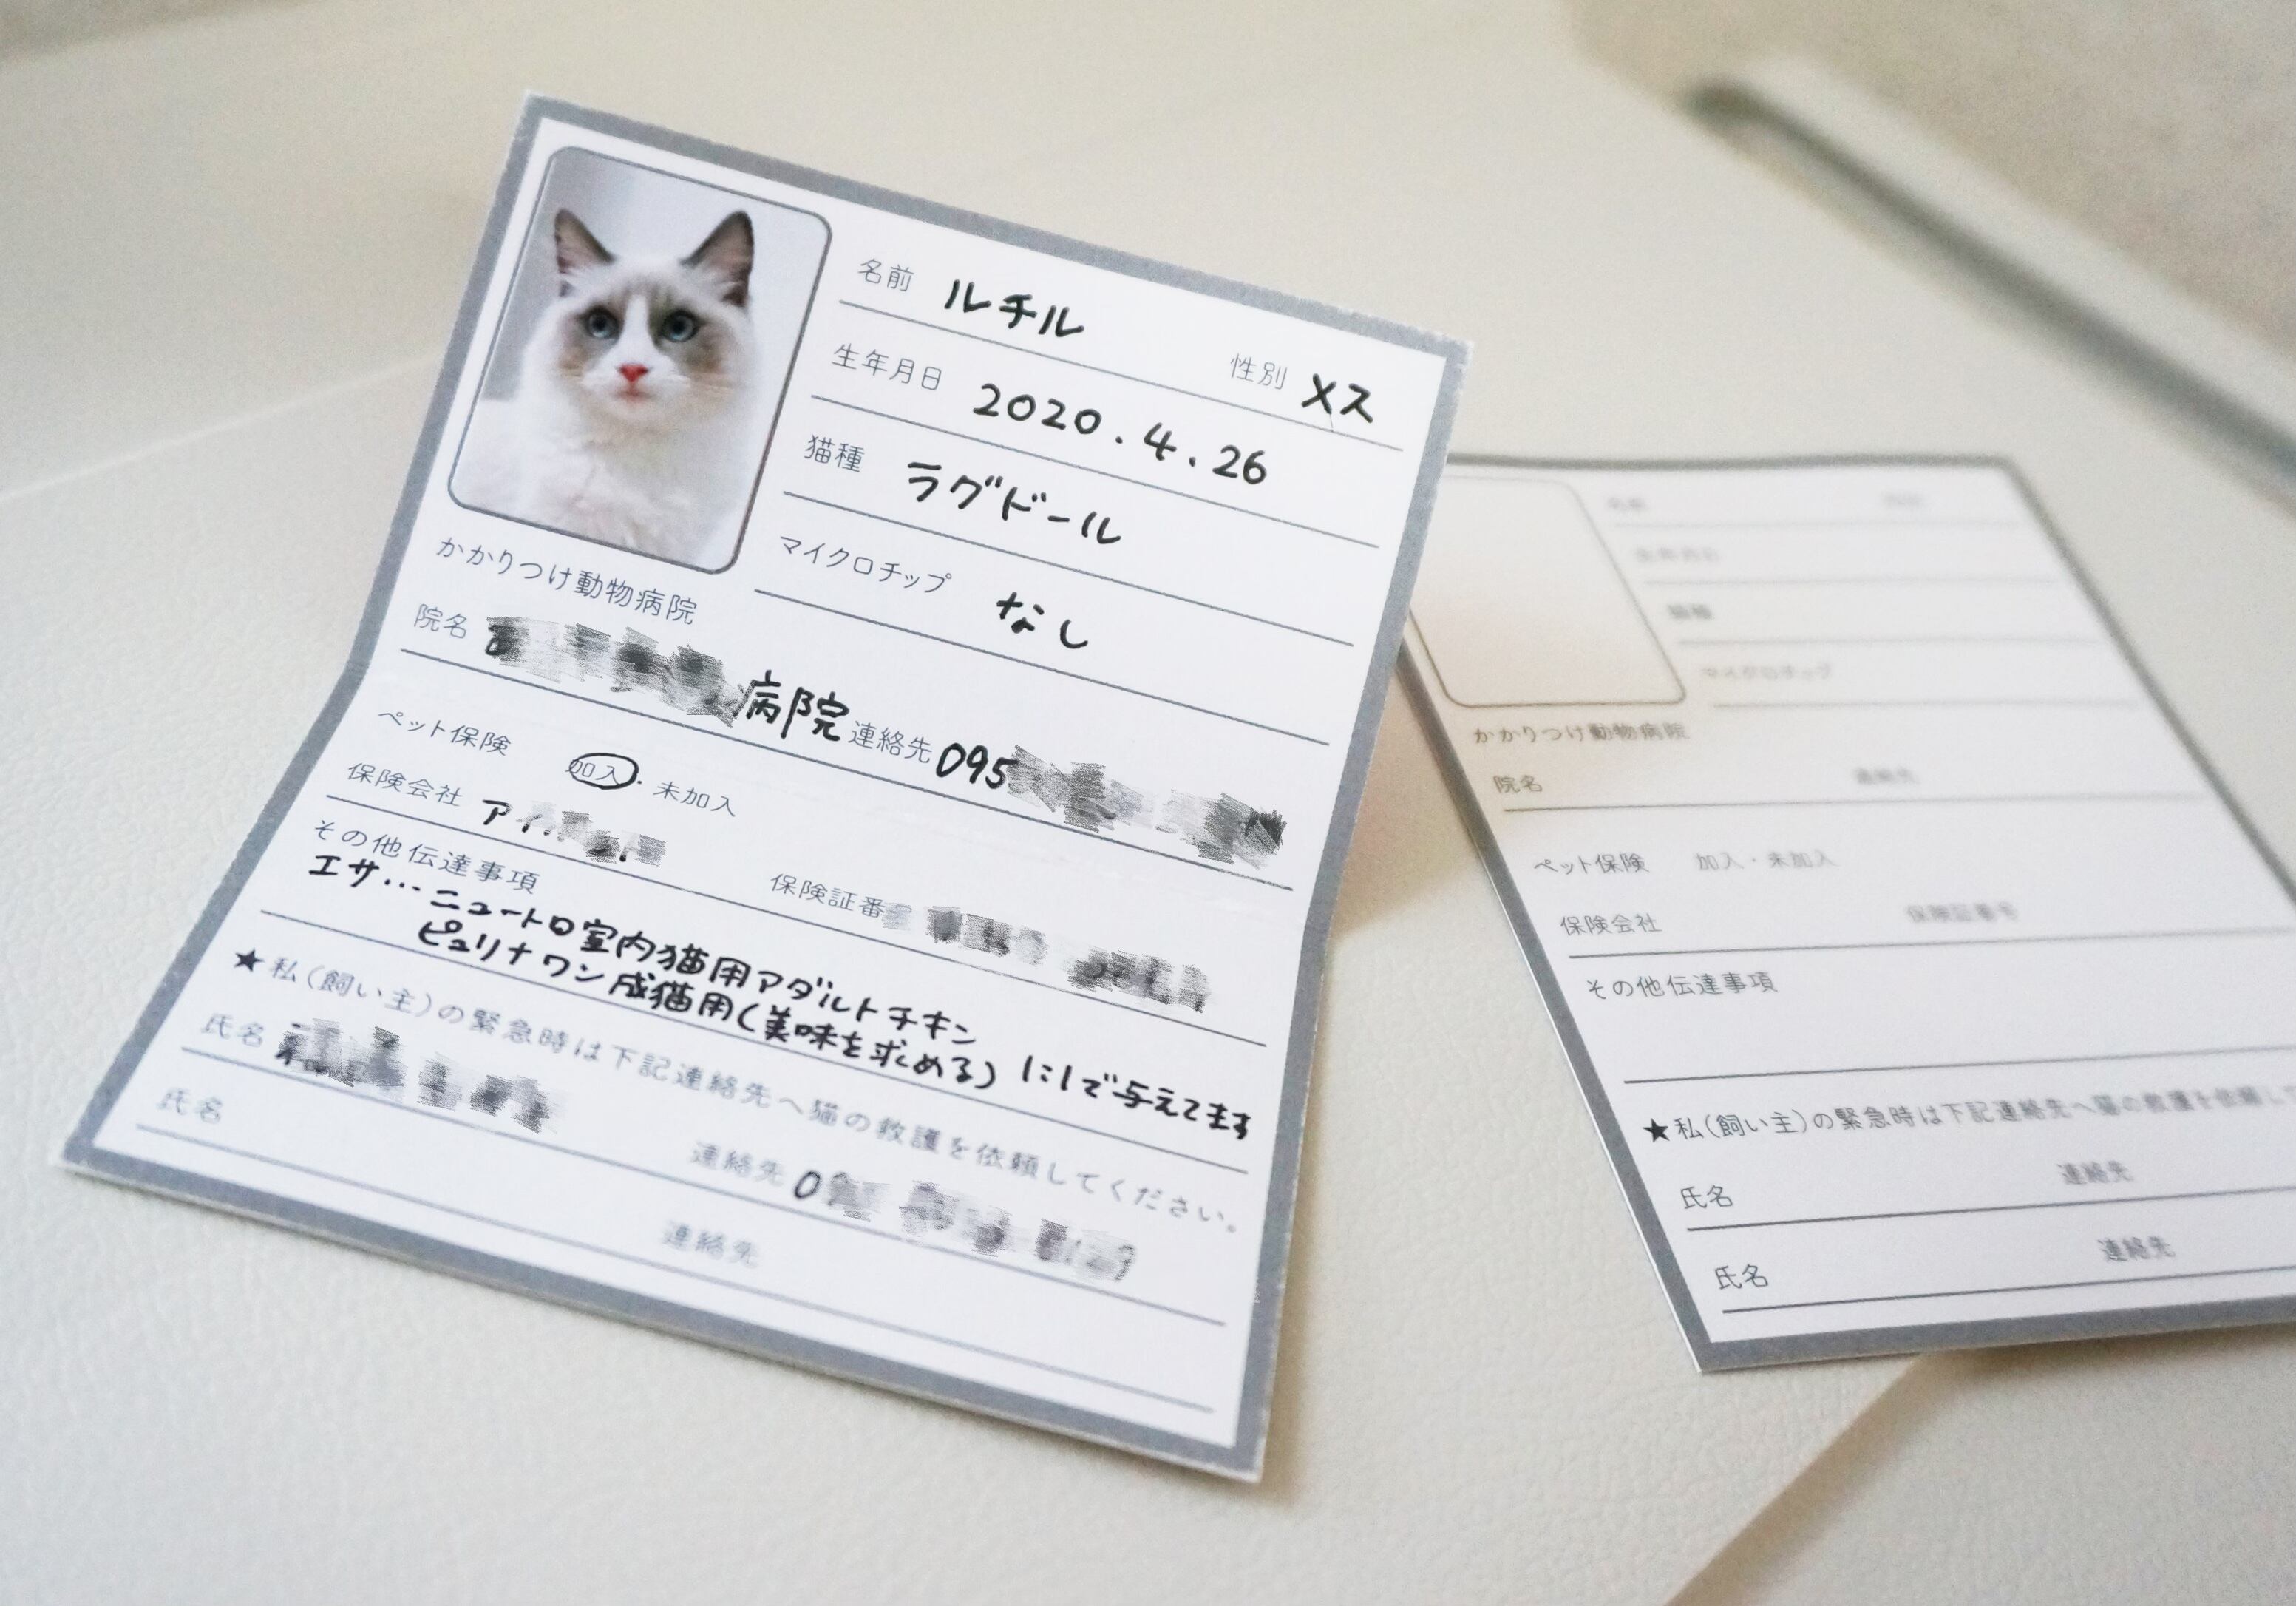 名前 ルチル 性別 メス
生年月日 2020.4.26
猫種 ラグドール
マイクロチップ なし
かかりつけ動物病院
院名 病院 連絡先 095
ペット保険 加入・未加入
保険会社 ア 保険証番
その他伝達事項
エサ…ニュートロ室内猫用アダルトチキン
ピュリナワン成猫用(美味を求める) 1:1で与えてます
★私(飼い主)の緊急時は下記連絡先へ猫の救護を依頼してください。
氏名 連絡先 0
氏名 連絡先
名前
生年月日
猫種
マイクロチップ
かかりつけ動物病院
院名 連絡先
ペット保険 加入・未加入
保険会社 保険証番号
その他伝達事項
★私(飼い主)の緊急時は下記連絡先へ猫の救護を依頼し
氏名 連絡先
氏名 連絡先